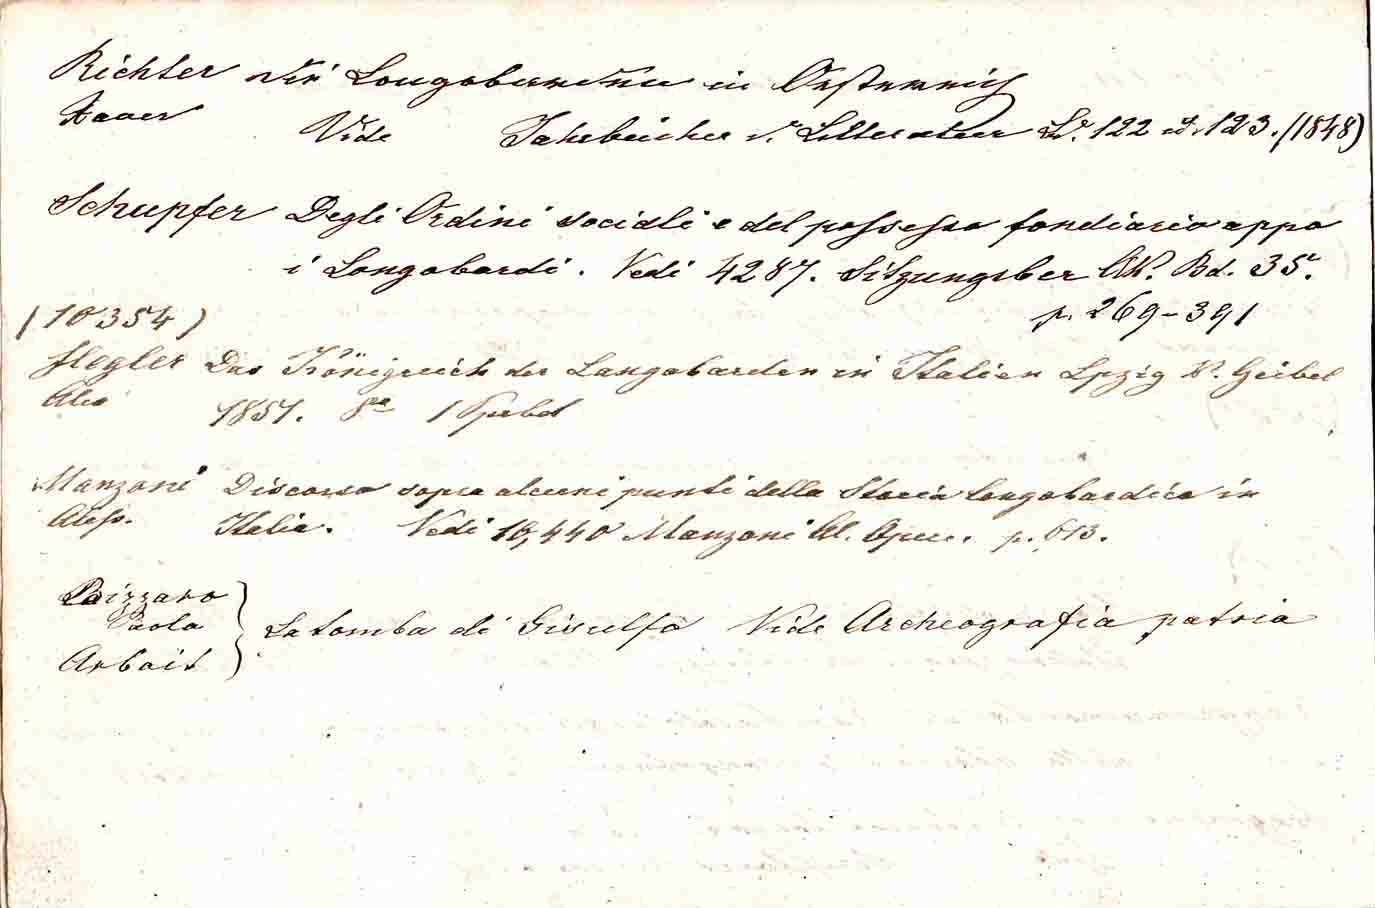 Richter Die Longobarden in Oesterreich
Xaver Vide Jahrbücher d. Litteratur Bd. 122 u. 123. (1848)
Schupfer Degli Ordini sociali e del possesso fondiario appo
i Longobardi. Vedi 4287. Sitzungsber Ak. Bd. 35.
p. 269-391
(10354)
Flegler Das Königreich der Langobarden in Italien Lpzig Geibel
Alex 1851. 8vo 1
Manzoni Discorso sopra alcuni punti della Storia Longobardica in
Aless. Italia. Vedi 10,440 Manzoni Al. Opere. p. 613.
Bizzaro
Paolo
Arboit
La tomba di Gisulfo Vide Archeografia patria